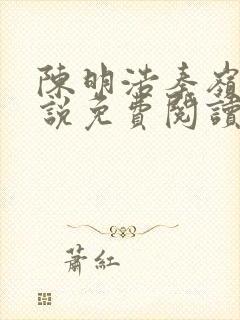 陳明浩秦嶺
說免費閱讀
蕭紅